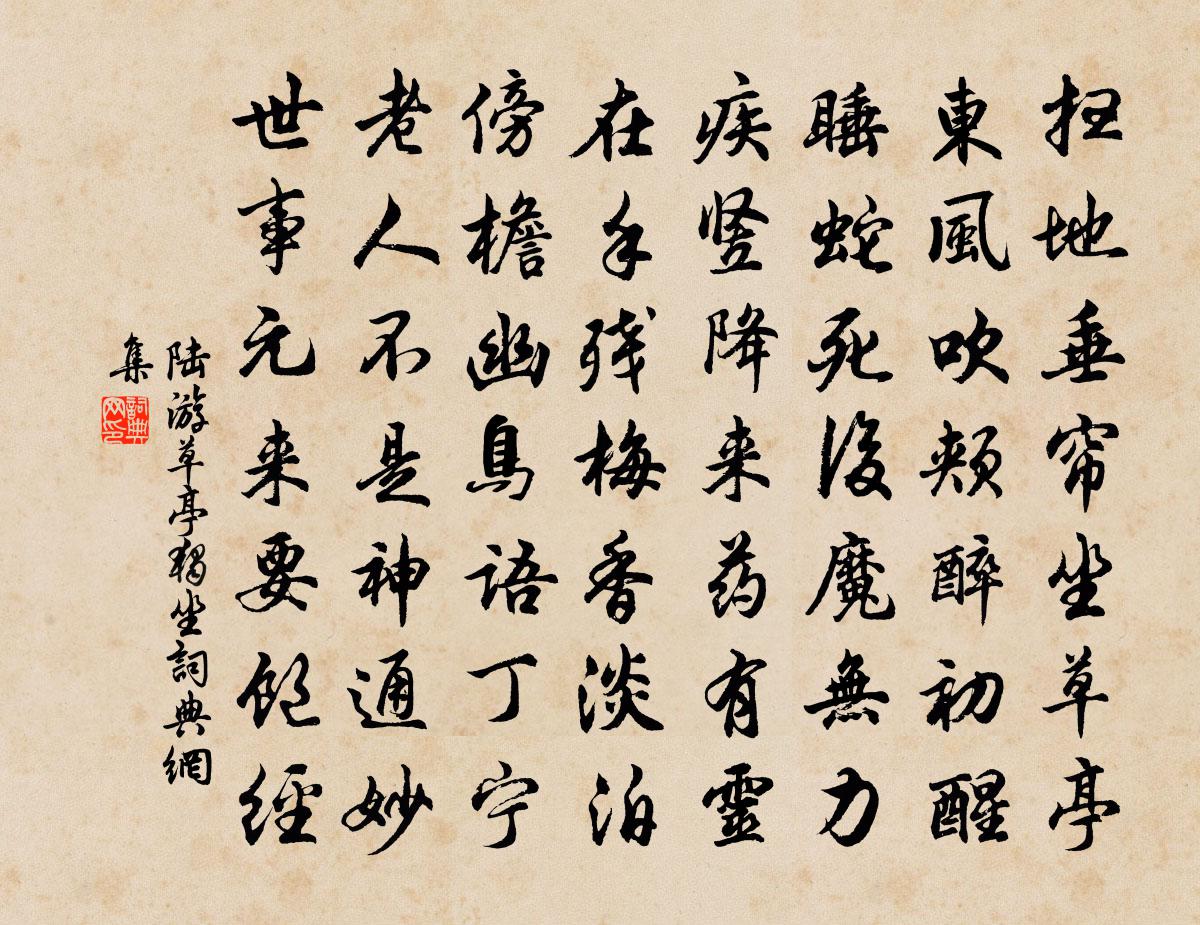 扫地垂帘坐草亭
東風吹颊醉初醒
睡蛇死後魔無力
疾竖降来药有靈
在手残梅香淡泊
傍檐幽鳥語丁宁
老人不是神通妙
世事元来要飽經
陆游草亭獨坐詞典網
集
詞典
网印